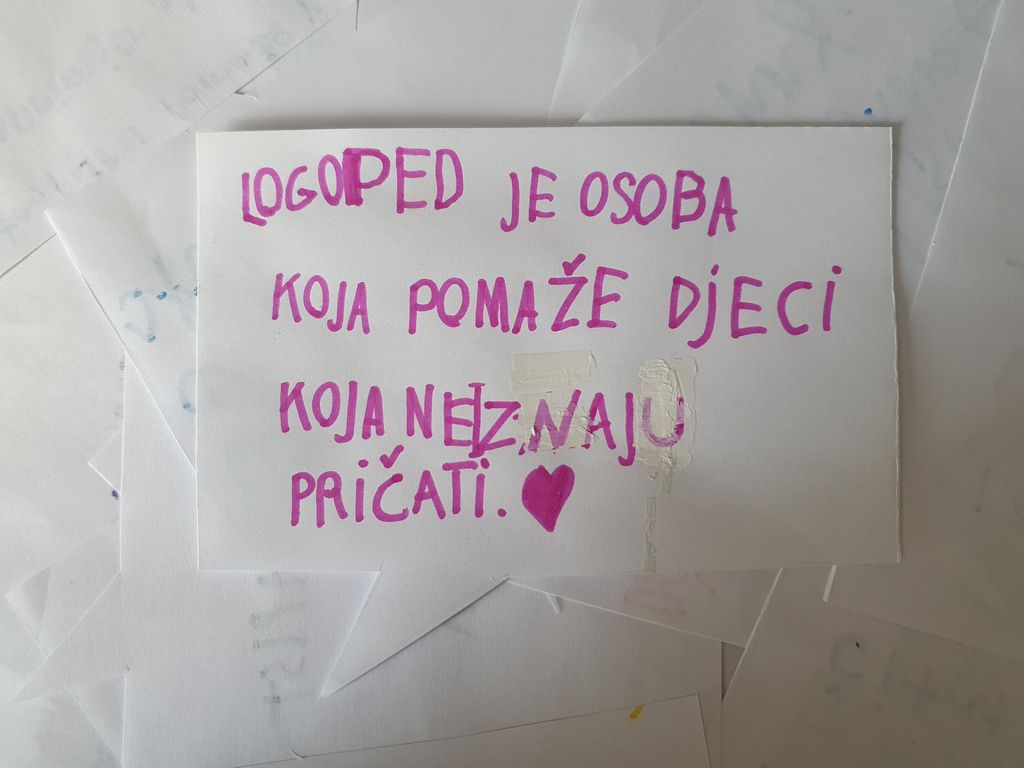 LOGOPED JE OSOBA
KOJA POMAŽE DJECI
KOJA NE ZNAJU
PRIČATI.